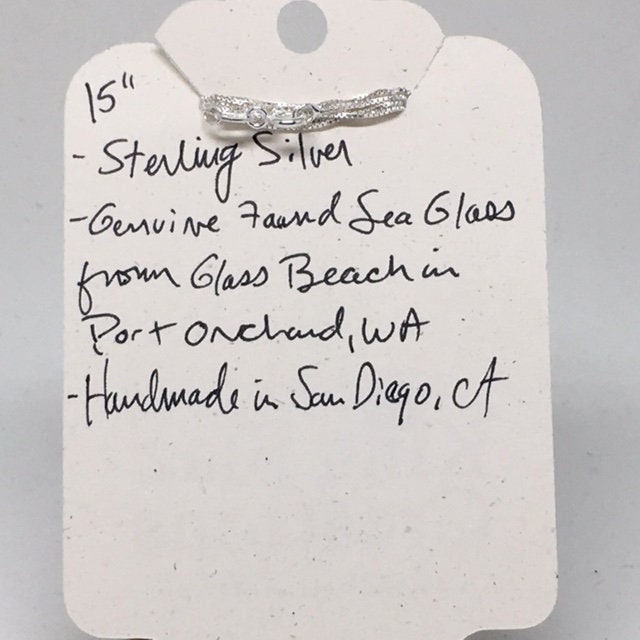 15"
- Sterling Silver
- Genuine Found Sea Glass
from Glass Beach in
Port Orchard, WA
- Handmade in San Diego, CA